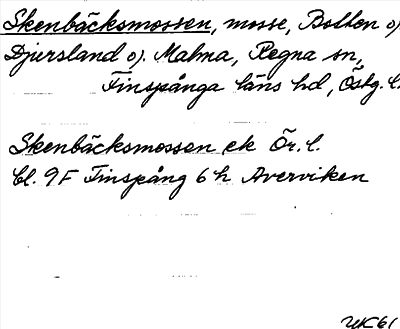 Skenbäcksmossen, mosse, Bolten o).
Djursland o). Malma, Regna sn,
Finspånga läns hd, Östg. l.
Skenbäcksmossen ek Ör. l.
bl. 9F Finspång 6 h Averviken
WK61